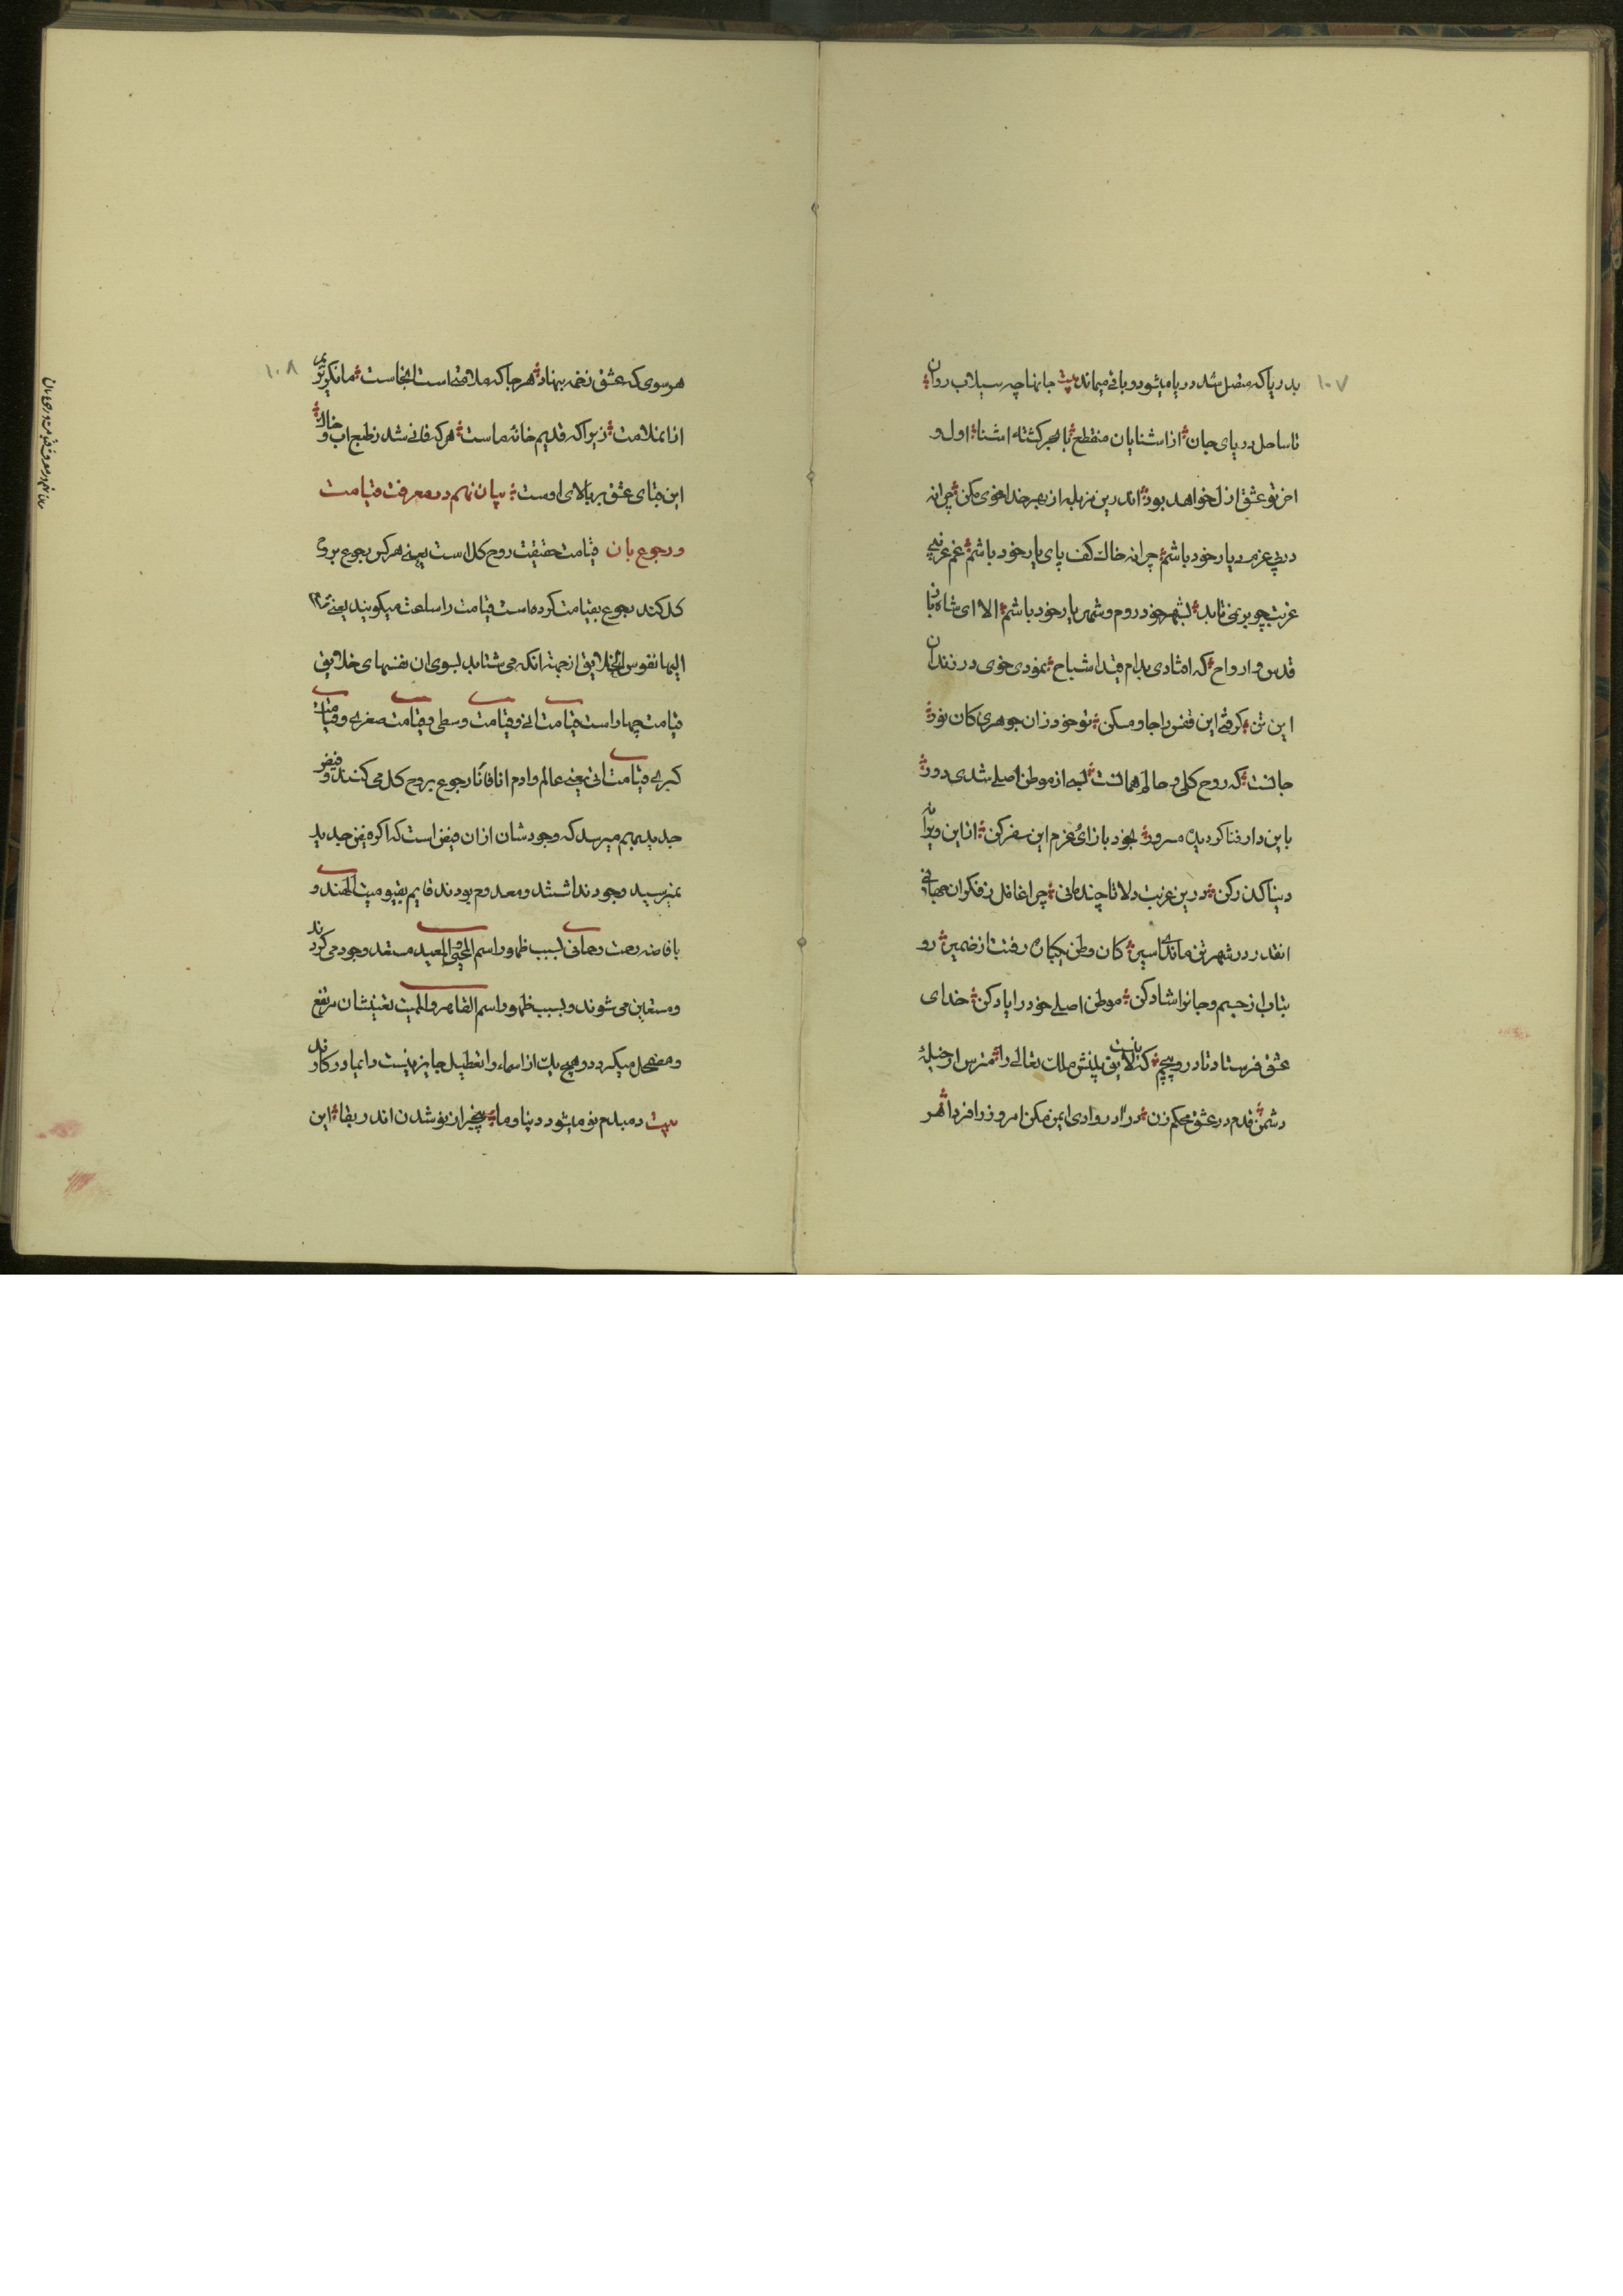 ۱۰۷
بدریا که متصل شد دریا میشود و باقی میماند بیت جانها چه سیلاب روان
تا ساحل دریای جان از اشنایان منقطع با بحر کشته اشنا اول و
اخر تو عشق ازل خواهد بود اندرین مزبله از بهر خدا خوی مکن چرا نه
در پی عزم دیار خود باشم چرا نه خاک کف پای یار خود باشم غم غریبی
غربت چو بر نمی تابد بشهر خود روم و شهریار خود باشم الا ای شاه باز
قدس و ارواح که افتادی بدام قید اشباح نمودی خوی در زندان
این تن کرفتی این قفس را جا و مسکن تو خود زان جوهری کان نور
جانست که روح کلی و حالم همانست بسی از موطن اصلی شدی دور
باین دار فنا کردیده مسرور بخود باز ای عزم این سفر کن از این ویرانه
دنیا کذر کن درین غربت دلا تا چند مانی چرا غافل ز فکر ان جهانی
انقدر در شهر تن ماندی اسیر کان وطن یکباره رفتت از ضمیر رو
بتاب از جسم و جانرا شاد کن موطن اصلی خود را یاد کن خدای
عشق فرستاد تا درو پیچیم که نیست لایق پیچش ملک تعالی را مترس از حیلهٔ
دشمن قدم در عشق محکم زن درا در وادی ایمن مکن امروز را فردا هر
۱۰۸
هر سوی که عشق زخمه بنهاد هر جا که ملامتی است انجاست ما نکریزیم
از ملامت زیرا که قدیم خانه ماست هر که فانی شد ز طبع اب و خاک
این قبای عشق بر بالای اوست بیان نهم در معرفت قیامت
و رجوع بان قیامت حقیقت روح کل است یعنی هر کس رجوع بروح
کل کند رجوع بقیامت کرده است قیامت را ساعت میکویند یعنی
الیها نفوس الخلایق از جهت انکه می شتابد بسوی ان نفسهای خلایق
قیامت چهار است قیامت انی و قیامت وسطی و قیامت صغری و قیامت
کبری قیامت انی یعنی عالم و ادم انا فانا رجوع بروح کل می کنند و فیض
جدید بهم میرسد که وجودشان از ان فیض است که اکر فیض جدید
نمیرسید وجود نداشتند و معدوم بودند قایم بقیومیت الهند و
بافاضه رحمت رحمانی بسبب ظهور اسم المحیی و المعید مستعد وجود می کردند
و متعین می شوند و بسبب ظهور اسم القاهر و الممیت تعینشان مرتفع
و مضمحل میکردد و هیچ یک از اسماء را تعطیل جایز نیست دایما در کارند
بیت دمبدم نو میشود دنیا و ما بیخبر از نو شدن اندر بقا این